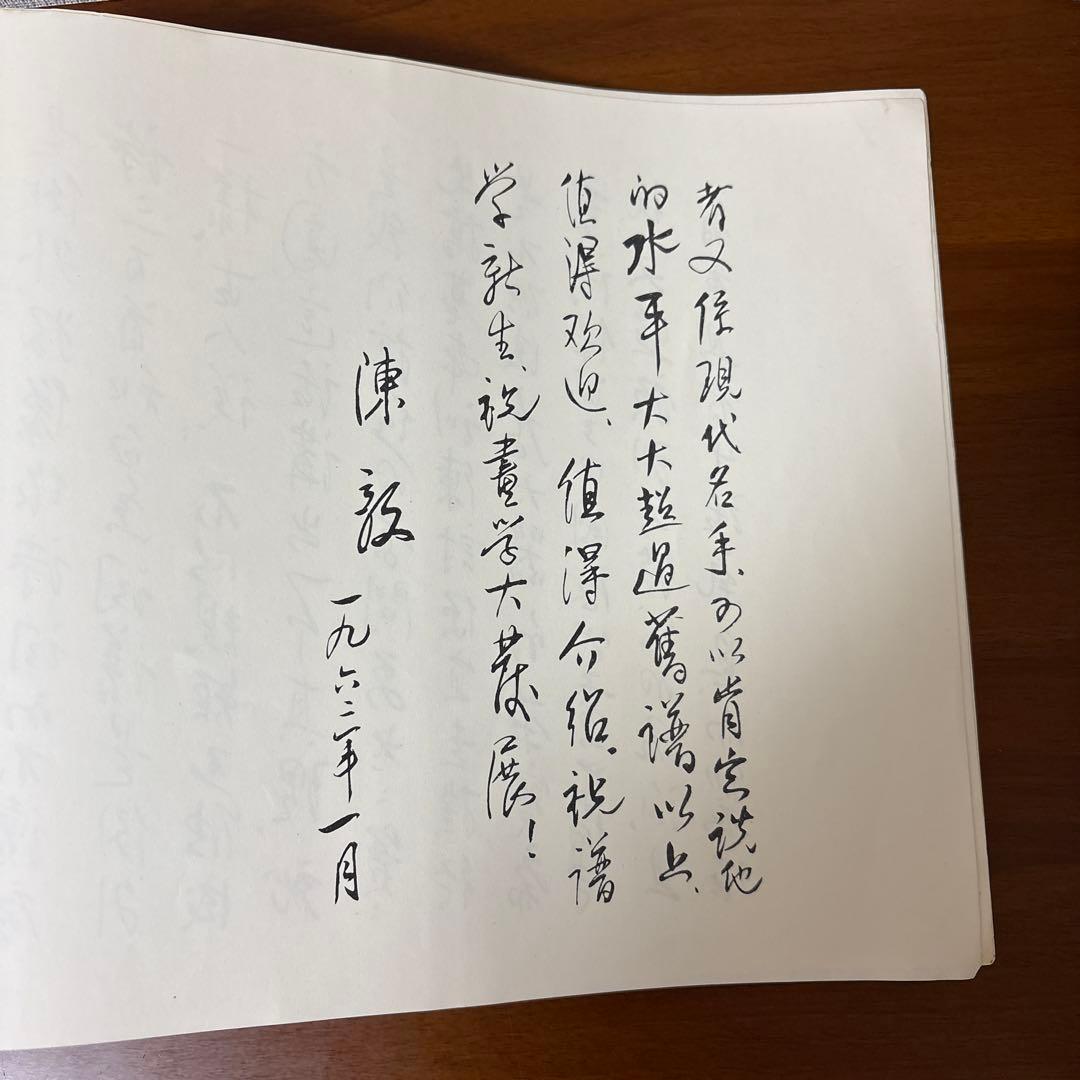 者又係現代名手、可以肯定说他
的水平大大超過舊譜以上、
值得欢迎、值得介绍。祝譜
学新生、祝畫学大發展！
陳毅
一九六二年一月